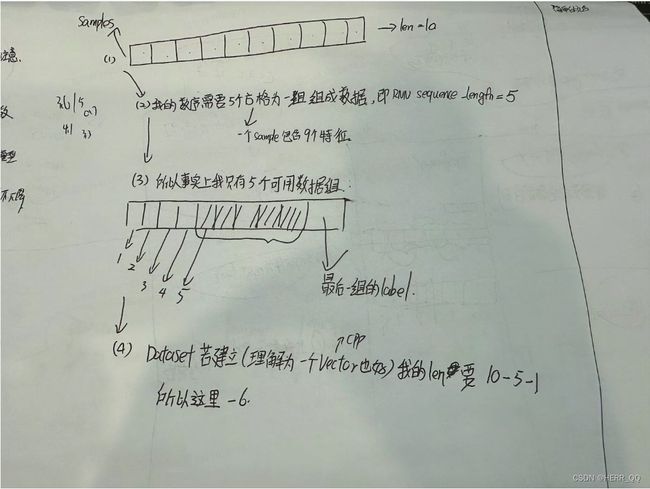 samples
→ len = 10
注意.
(1)
(2) 我的数序需要5个方格为一组 组成数据, 即 RNN sequence_length = 5
一个sample包含9个特征
(3) 所以事实上我只有5个可用数据组:
1 2 3 4 5
最后一组的label.
↗CPP
(4) Dataset 若建立(理解为一个Vector也好) 我的len要 10-5-1
所以这里 -6.
CSDN @HERR_QQ